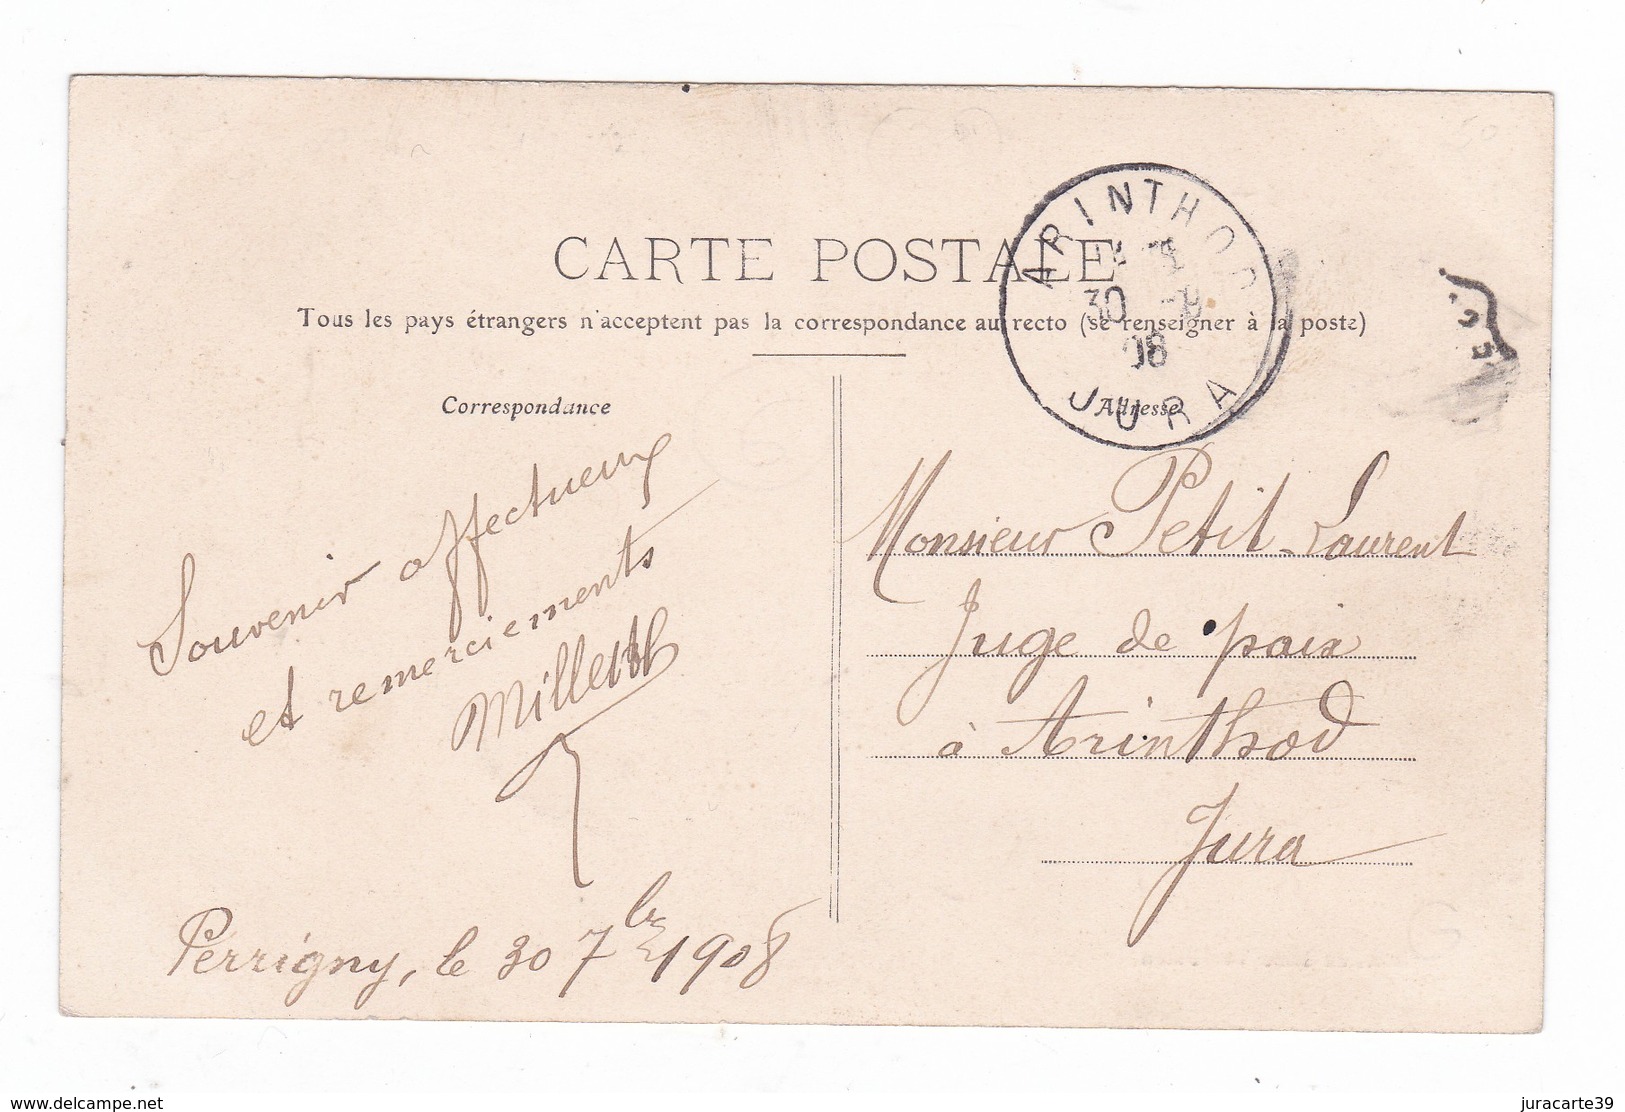 CARTE POSTALE
Tous les pays étrangers n'acceptent pas la correspondance au recto (se renseigner à la poste)
ARINTHOD
30 -9
08
JURA
Correspondance
Adresse
Souvenir affectueux
et remerciements
Perrigny, le 30 7bre 1908
Monsieur Petit-Laurent
Juge de paix
à Arinthod
Jura
www.delcampe.net
juracarte39